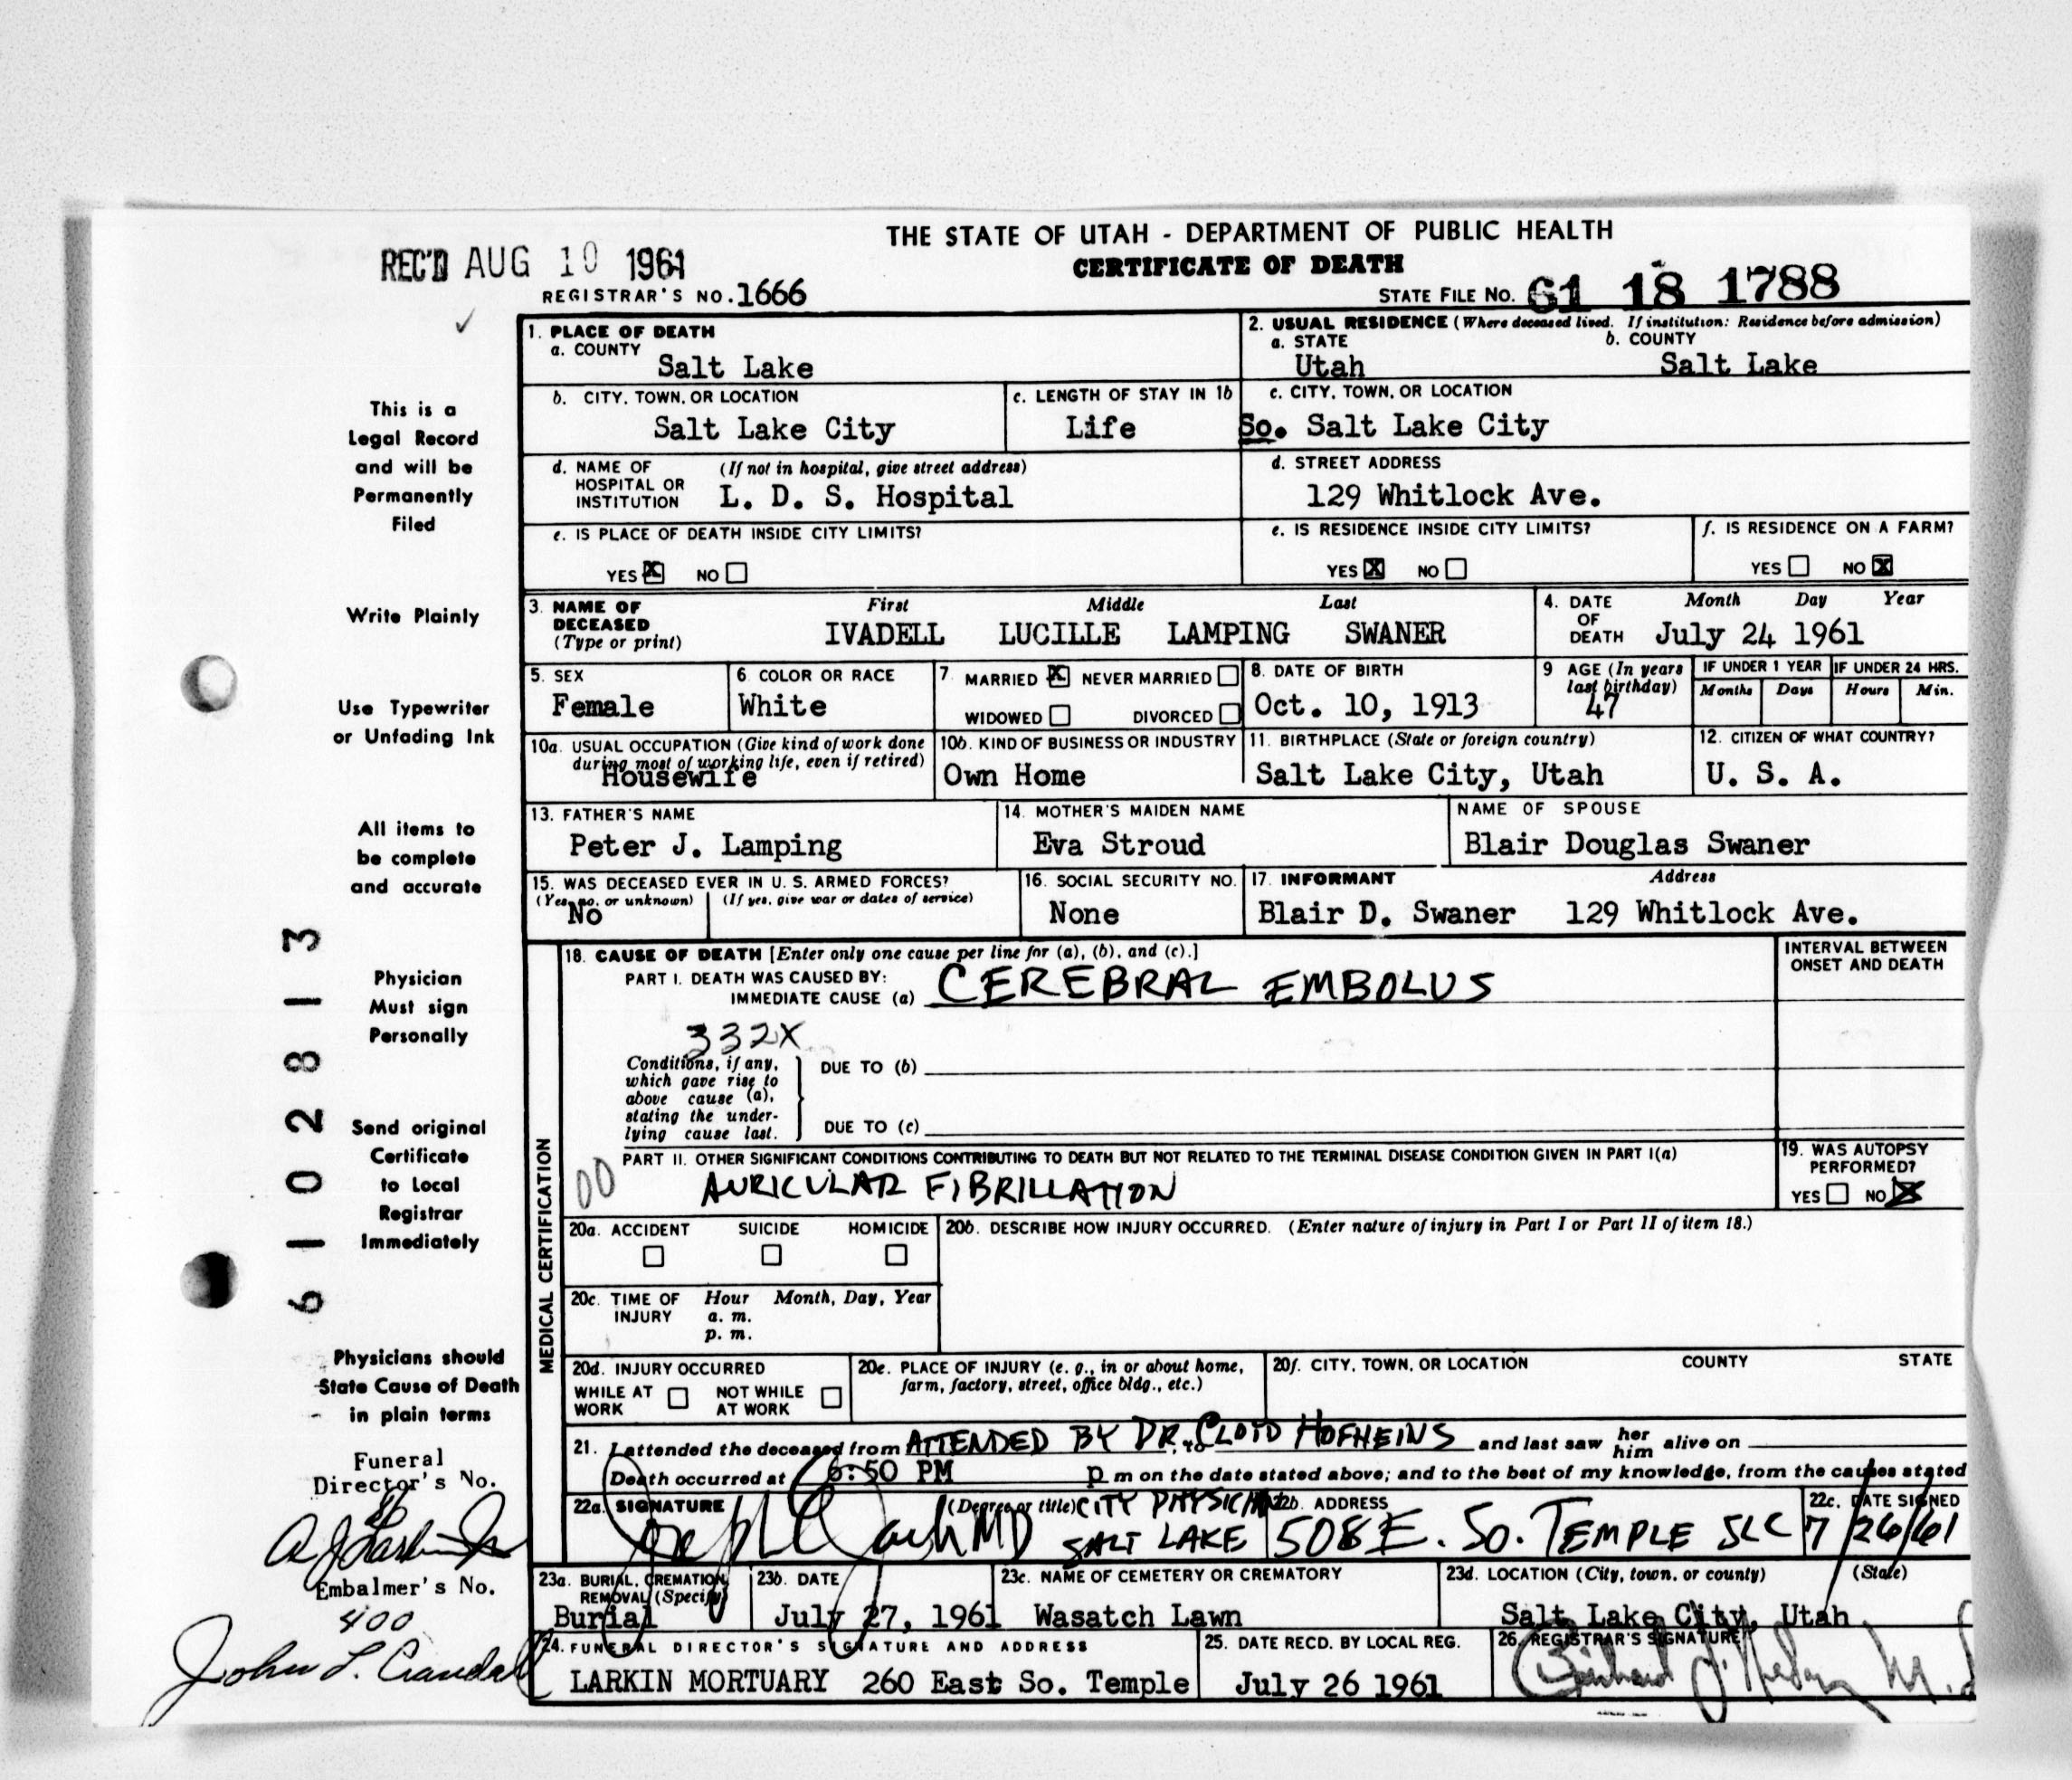 THE STATE OF UTAH - DEPARTMENT OF PUBLIC HEALTH
CERTIFICATE OF DEATH
REC'D AUG 10 1961
REGISTRAR'S NO. 1666
STATE FILE NO. 61 18 1788
This is a
Legal Record
and will be
Permanently
Filed
Write Plainly
Use Typewriter
or Unfading Ink
All items to
be complete
and accurate
Physician
Must sign
Personally
Send original
Certificate
to Local
Registrar
Immediately
Physicians should
State Cause of Death
in plain terms
Funeral
Director's No.
Embalmer's No.
400
John L. Crandall
6102813
1. PLACE OF DEATH
a. COUNTY
Salt Lake
2. USUAL RESIDENCE (Where deceased lived. If institution: Residence before admission)
a. STATE b. COUNTY
Utah Salt Lake
b. CITY, TOWN, OR LOCATION
Salt Lake City
c. LENGTH OF STAY IN 1b
Life
c. CITY, TOWN, OR LOCATION
So. Salt Lake City
d. NAME OF HOSPITAL OR INSTITUTION (If not in hospital, give street address)
L. D. S. Hospital
d. STREET ADDRESS
129 Whitlock Ave.
e. IS PLACE OF DEATH INSIDE CITY LIMITS?
YES X NO
e. IS RESIDENCE INSIDE CITY LIMITS?
YES X NO
f. IS RESIDENCE ON A FARM?
YES NO X
3. NAME OF DECEASED (Type or print)
First Middle Last
IVADELL LUCILLE LAMPING SWANER
4. DATE OF DEATH Month Day Year
July 24 1961
5. SEX
Female
6. COLOR OR RACE
White
7. MARRIED X NEVER MARRIED
WIDOWED DIVORCED
8. DATE OF BIRTH
Oct. 10, 1913
9 AGE (In years last birthday)
47
IF UNDER 1 YEAR IF UNDER 24 HRS.
Months Days Hours Min.
10a. USUAL OCCUPATION (Give kind of work done during most of working life, even if retired)
Housewife
10b. KIND OF BUSINESS OR INDUSTRY
Own Home
11. BIRTHPLACE (State or foreign country)
Salt Lake City, Utah
12. CITIZEN OF WHAT COUNTRY?
U. S. A.
13. FATHER'S NAME
Peter J. Lamping
14. MOTHER'S MAIDEN NAME
Eva Stroud
NAME OF SPOUSE
Blair Douglas Swaner
15. WAS DECEASED EVER IN U. S. ARMED FORCES?
(Yes, no, or unknown) (If yes, give war or dates of service)
No
16. SOCIAL SECURITY NO.
None
17. INFORMANT Address
Blair D. Swaner 129 Whitlock Ave.
MEDICAL CERTIFICATION
18. CAUSE OF DEATH [Enter only one cause per line for (a), (b), and (c).]
PART I. DEATH WAS CAUSED BY:
IMMEDIATE CAUSE (a) CEREBRAL EMBOLUS
INTERVAL BETWEEN ONSET AND DEATH
332X
Conditions, if any,
which gave rise to
above cause (a),
stating the under-
lying cause last.
DUE TO (b)
DUE TO (c)
PART II. OTHER SIGNIFICANT CONDITIONS CONTRIBUTING TO DEATH BUT NOT RELATED TO THE TERMINAL DISEASE CONDITION GIVEN IN PART I(a)
00
AURICULAR FIBRILLATION
19. WAS AUTOPSY PERFORMED?
YES NO X
20a. ACCIDENT SUICIDE HOMICIDE
20b. DESCRIBE HOW INJURY OCCURRED. (Enter nature of injury in Part I or Part II of item 18.)
20c. TIME OF INJURY Hour Month, Day, Year
a. m.
p. m.
20d. INJURY OCCURRED
WHILE AT WORK NOT WHILE AT WORK
20e. PLACE OF INJURY (e. g., in or about home, farm, factory, street, office bldg., etc.)
20f. CITY, TOWN, OR LOCATION COUNTY STATE
21. I attended the deceased from ATTENDED BY DR. CLOYD HOFHEINS and last saw her him alive on
Death occurred at 6:50 PM p m on the date stated above; and to the best of my knowledge, from the causes stated
22a. SIGNATURE (Degree or title)
MD CITY PHYSICIAN SALT LAKE
22b. ADDRESS
508 E. So. TEMPLE SLC
22c. DATE SIGNED
7/26/61
23a. BURIAL, CREMATION, REMOVAL (Specify)
Burial
23b. DATE
July 27, 1961
23c. NAME OF CEMETERY OR CREMATORY
Wasatch Lawn
23d. LOCATION (City, town, or county) (State)
Salt Lake City, Utah
24. FUNERAL DIRECTOR'S SIGNATURE AND ADDRESS
LARKIN MORTUARY 260 East So. Temple
25. DATE RECD. BY LOCAL REG.
July 26 1961
26. REGISTRAR'S SIGNATURE